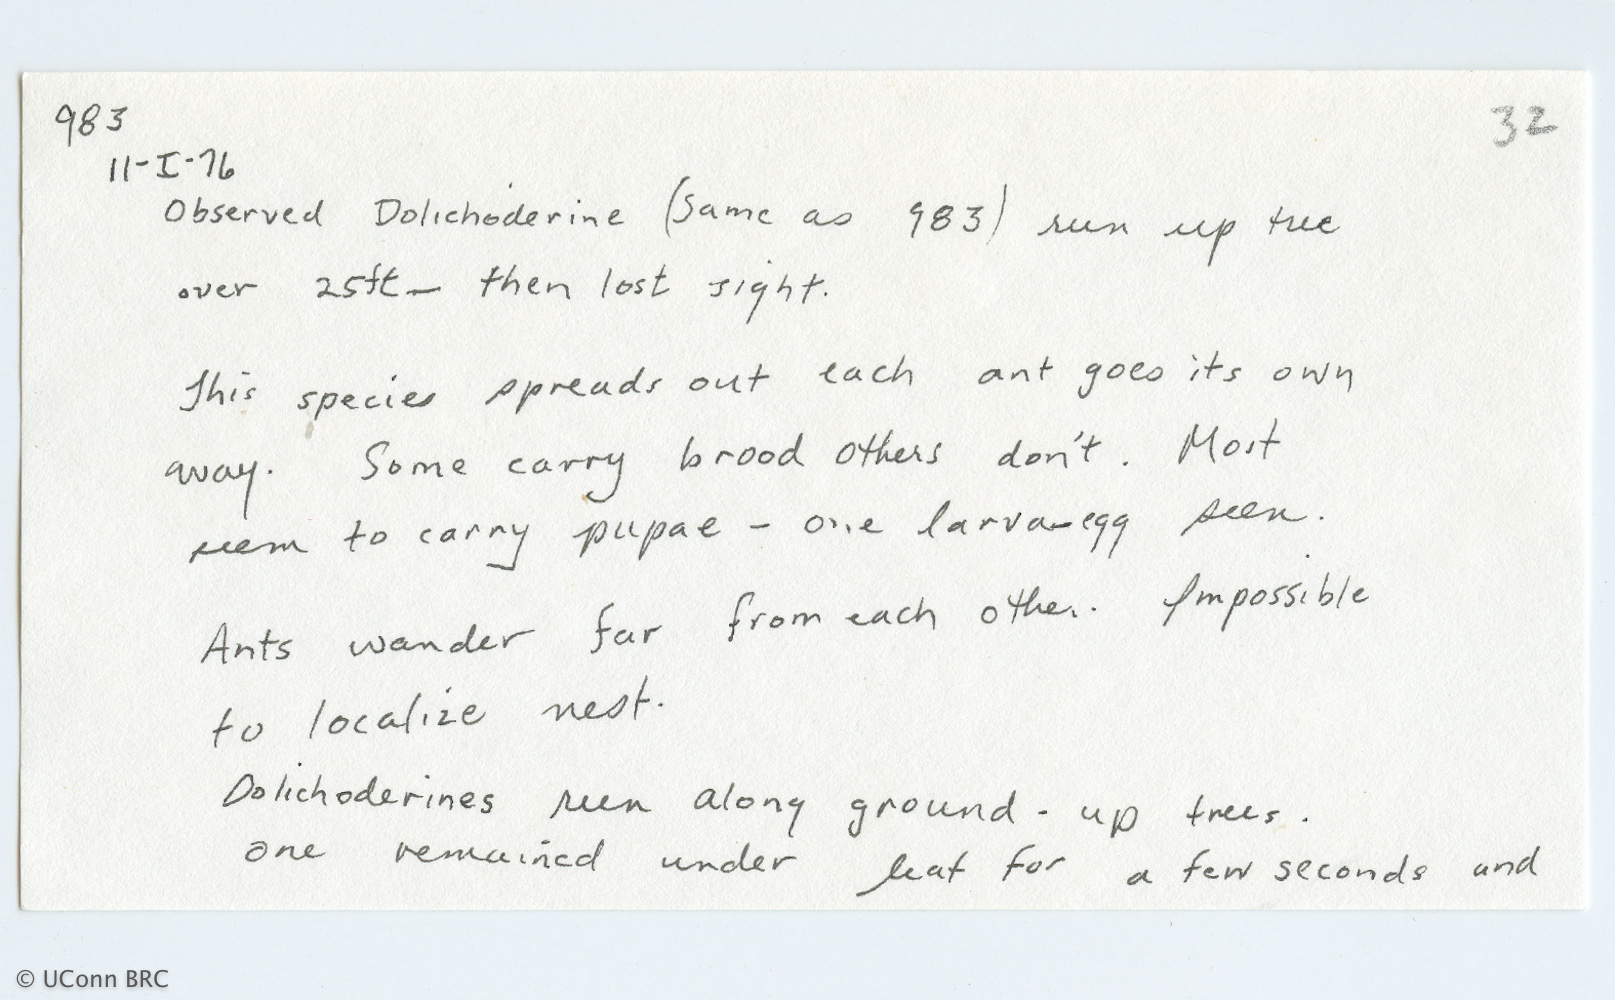 983
32
11-I-76
Observed Dolichoderine (same as 983) run up tree
over 25ft - then lost sight.
This species spreads out each ant goes its own
way. Some carry brood others don't. Most
seem to carry pupae - one larva-egg seen.
Ants wander far from each other. Impossible
to localize nest.
Dolichoderines run along ground - up trees.
one remained under leaf for a few seconds and
© UConn BRC